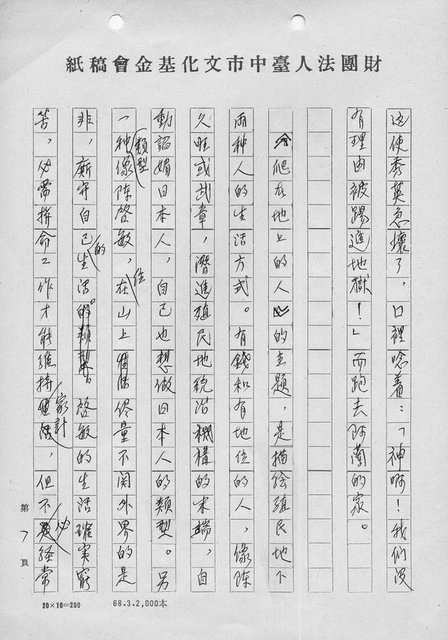 財團法人臺中市文化基金會稿紙
這使秀英急壞了,口裡唸着:「神啊!我們沒
有理由被踢進地獄!」而跑去阿蘭的家。
「爬在地上的人」的主題,是描繪殖民地下
兩種人的生活方式。有錢和有地位的人,像陳
久旺或武章,潛進殖民地統治機構的末端,自
動諂媚日本人,自己也想做日本人的類型。另
一種類型像陳啓敏,住在山上儘量不關外界的是
非,廝守自己的生活。啓敏的生活確實窮
苦,必需拼命工作才能維持家計,但不必經常
第7頁
20×10=200 68.3.2,000本